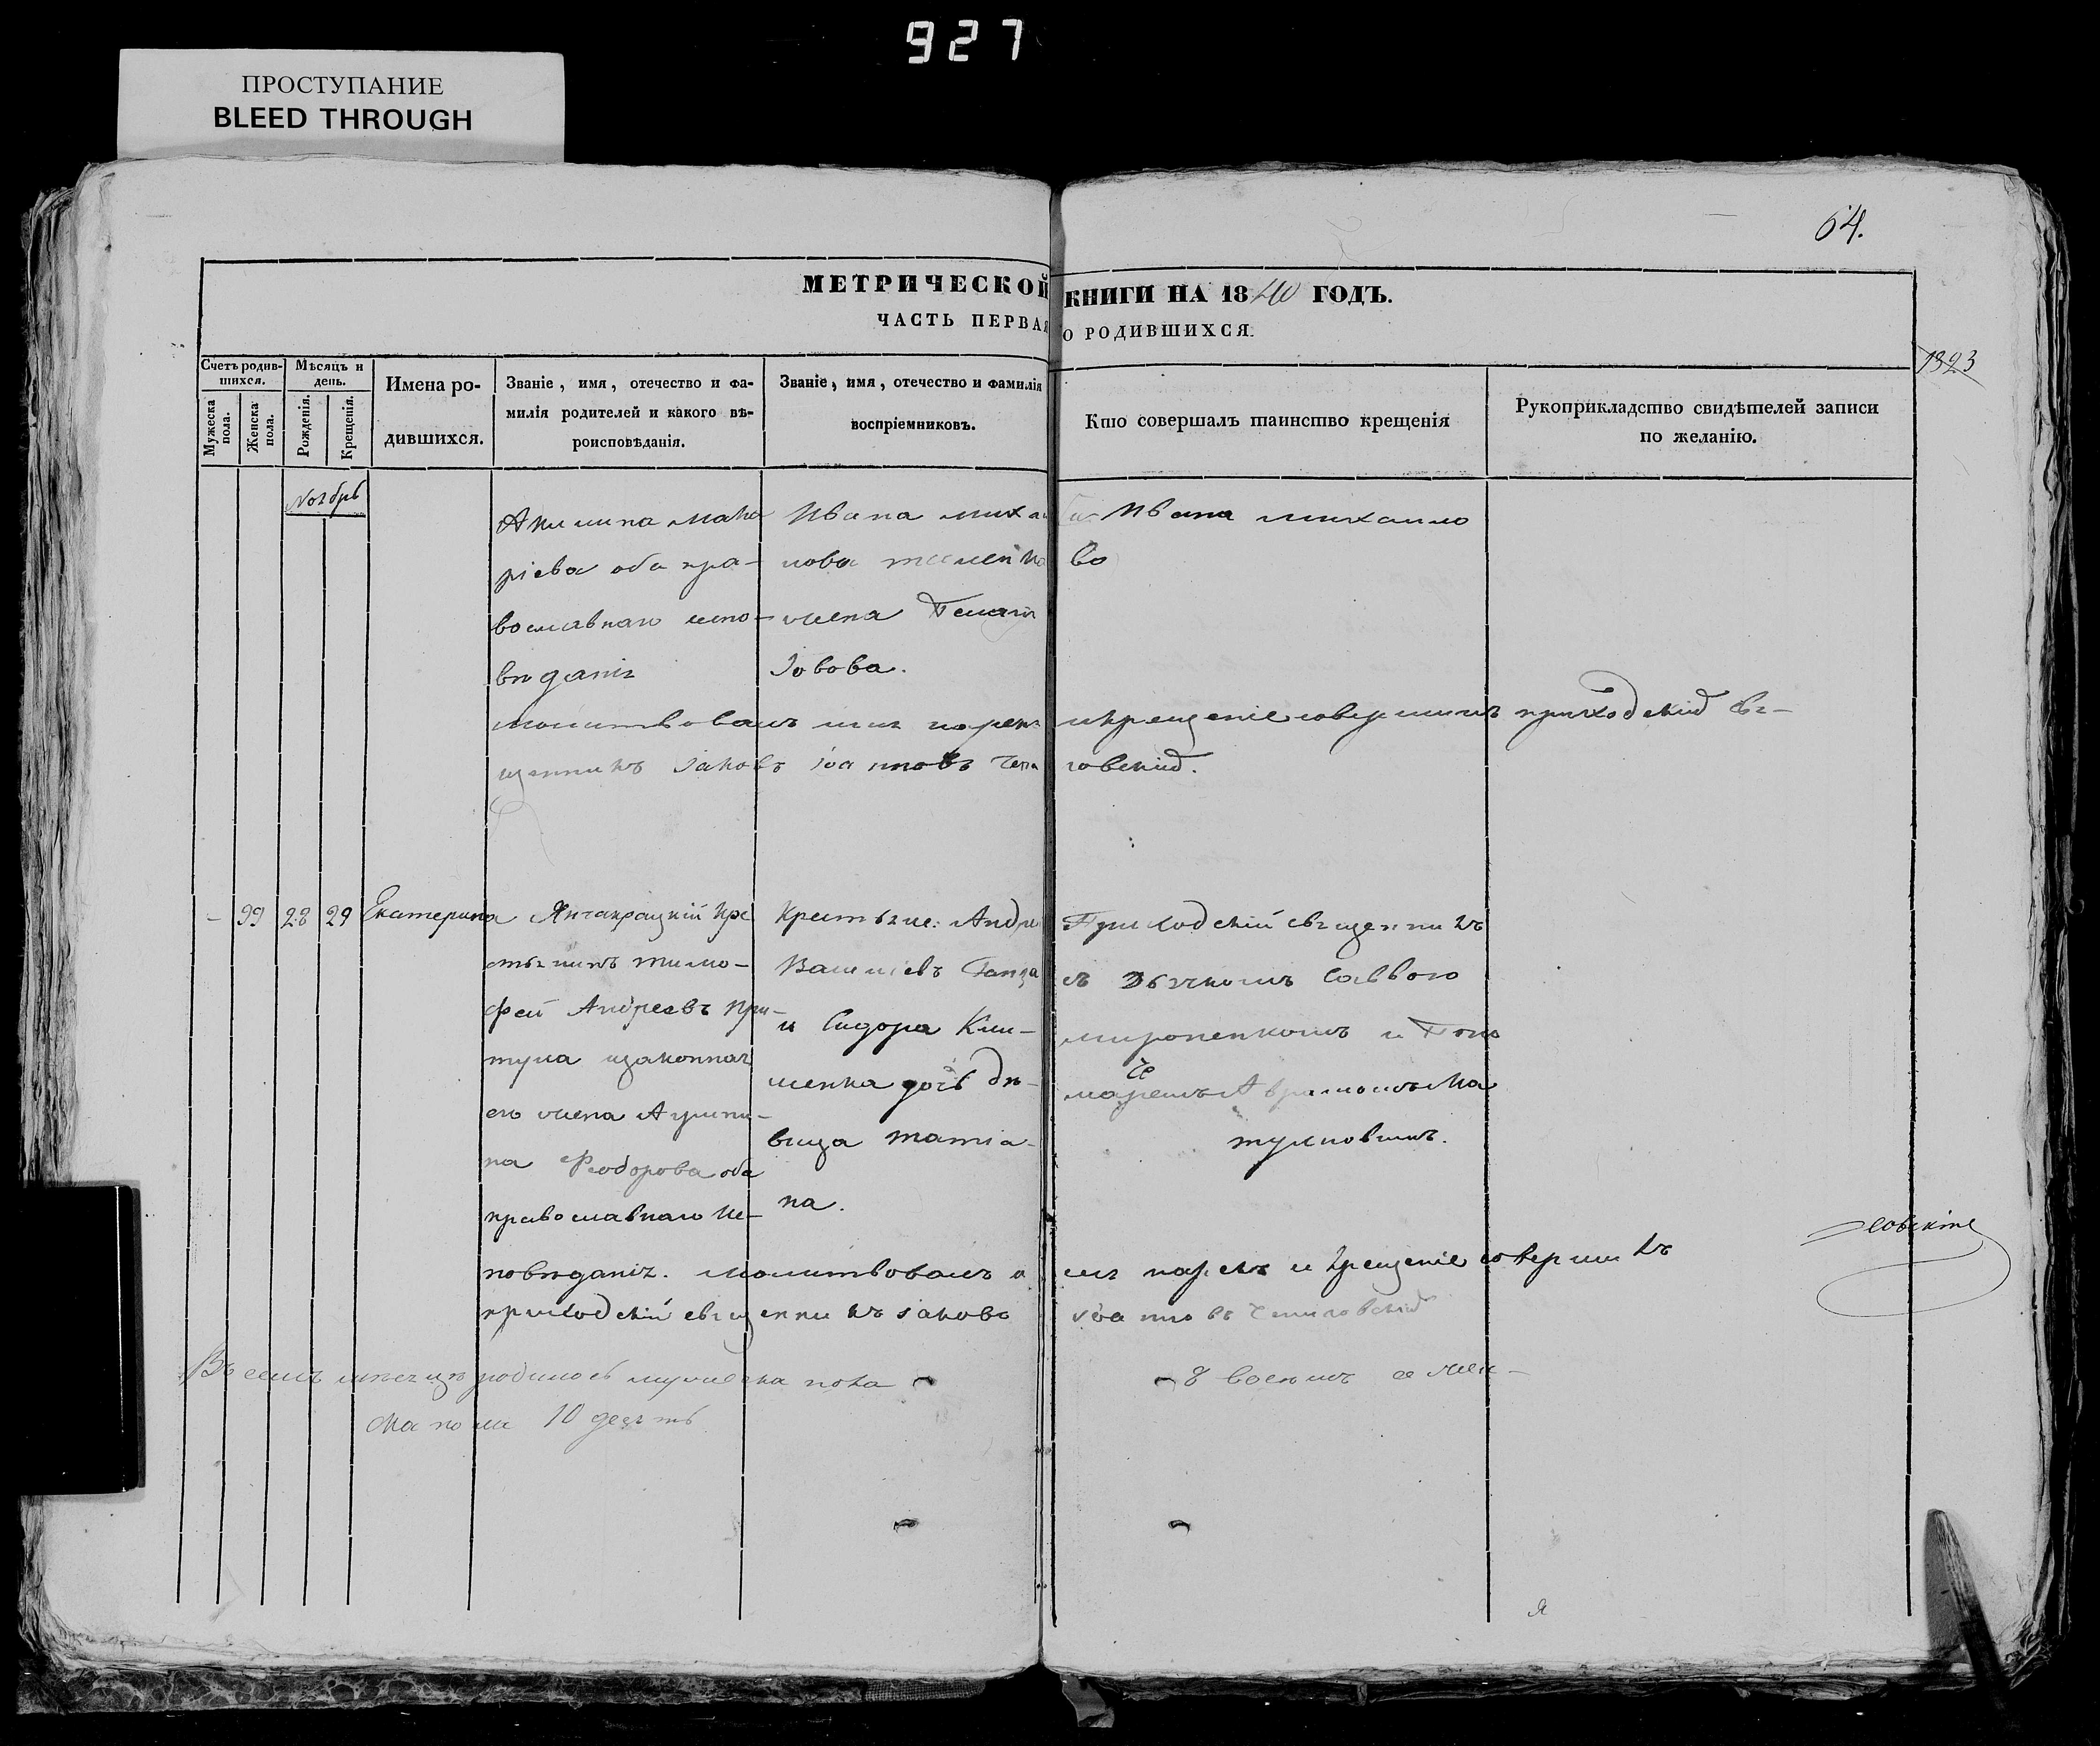 927
ПРОСТУПАНИЕ
BLEED THROUGH
64.
МЕТРИЧЕСКОЙ КНИГИ НА 1840 ГОДЪ.
ЧАСТЬ ПЕРВАЯ О РОДИВШИХСЯ.
1823
Счетъ родившихся.
Мужеска пола.
Женска пола.
Мѣсяцъ и день.
Рожденія.
Крещенія.
Имена родившихся.
Званіе, имя, отечество и фамилія родителей и какого вѣроисповѣданія.
Званіе, имя, отечество и фамилія воспріемниковъ.
Кто совершалъ таинство крещенія
Рукоприкладство свидѣтелей записи по желанію.
Ноябрь
Мака
ріева оба пра-
вославнаго испо-
вѣданія
Ивана Михаи
лова
жена
Іовова.
Ивана Михаило
во
молитвовалъ имя нарекъ и крещеніе совершилъ приходскій свя-
щенникъ Іаковъ Іоанновъ
- 99 28 29 Екатерина
кре
стьянинъ Тимо-
фей Андреевъ При-
тула изаконная
его жена Агрипи-
на Феодорова оба
православнаго ис-
повѣданія. молитвовалъ имя нарекъ и крещеніе совершилъ
приходскій священникъ Іаковъ Іоанновъ
Крестьяне: Андре
Василіевъ
и Сидора Кли-
менка дочь дѣ-
вица Татіа-
на.
Приходскій священникъ
съ Дьячкомъ Саввою
Мироненкомъ и Поно
маремъ
Въ семъ мѣсяцѣ родилось мужеска пола - 8 восемь а жен-
ска пола 10 десять